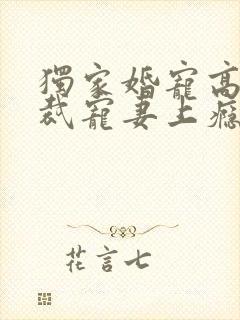 獨家婚寵高
裁寵妻上癮
花言七